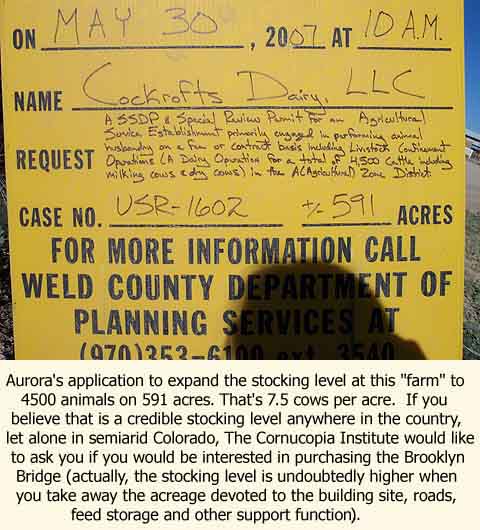 ON MAY 30, 2007 AT 10 A.M.
NAME Cockrofts Dairy, LLC
A SSDP & Special Review Permit for an Agricultural
Service Establishment primarily engaged in performing animal
husbandry on a fee or contract basis including Livestock Confinement
REQUEST Operations (A Dairy Operation for a total of 4,500 Cattle including
milking cows & dry cows) in the A (Agricultural) Zone District.
CASE NO. USR-1602 +/- 591 ACRES
FOR MORE INFORMATION CALL
WELD COUNTY DEPARTMENT OF
PLANNING SERVICES AT
(970)353-6100 ext. 3540
Aurora's application to expand the stocking level at this "farm" to
4500 animals on 591 acres. That's 7.5 cows per acre. If you
believe that is a credible stocking level anywhere in the country,
let alone in semiarid Colorado, The Cornucopia Institute would like
to ask you if you would be interested in purchasing the Brooklyn
Bridge (actually, the stocking level is undoubtedly higher when
you take away the acreage devoted to the building site, roads,
feed storage and other support function).